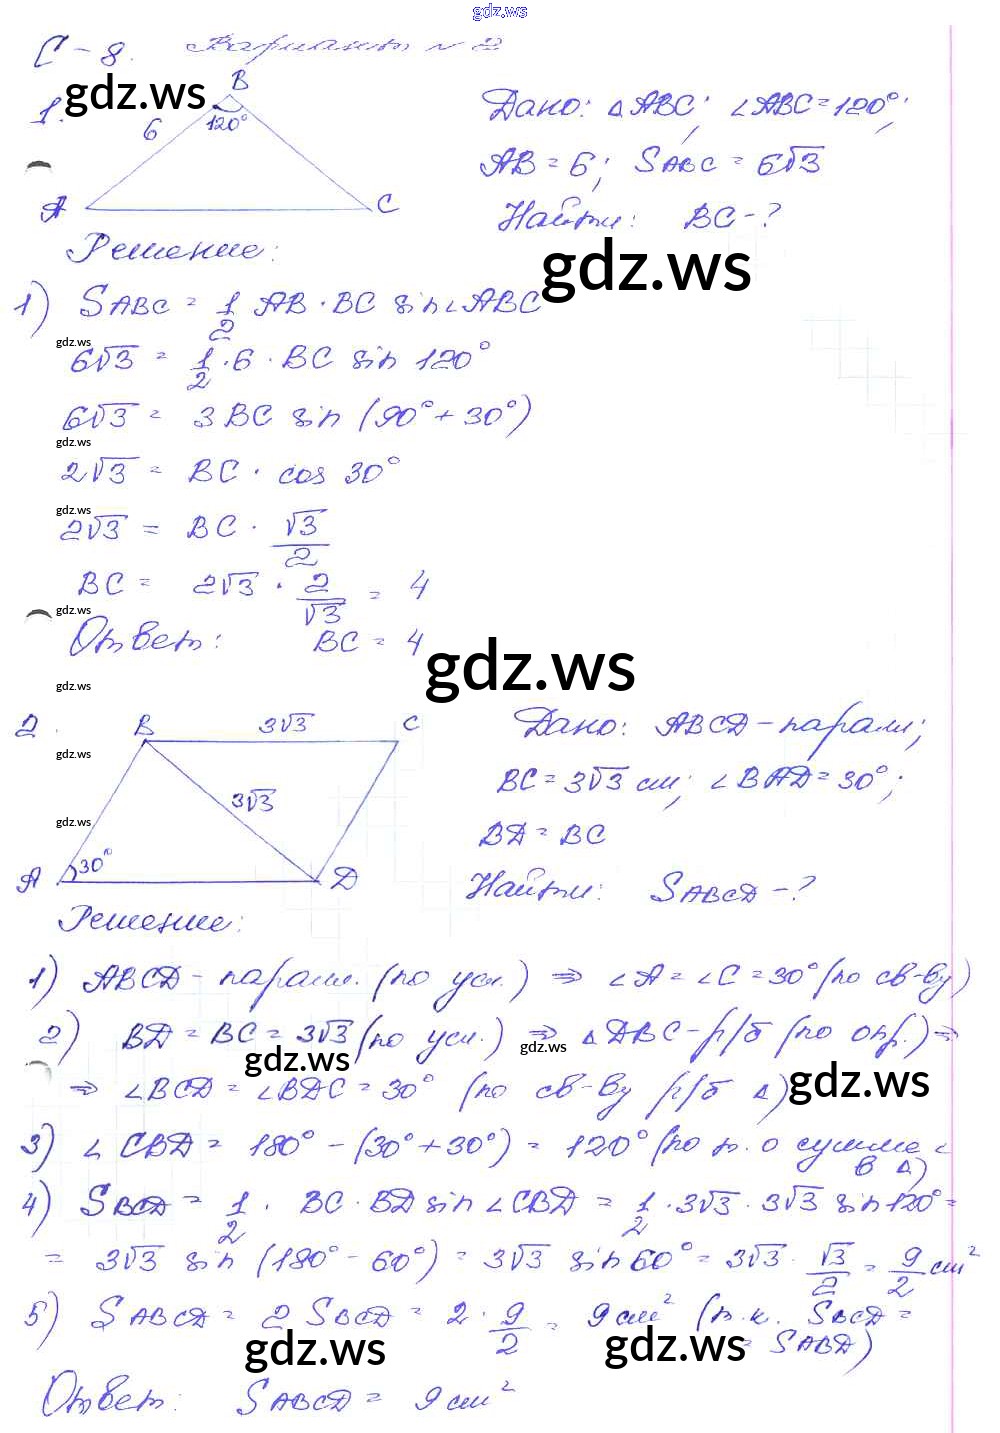 gdz.ws
С-8. Вариант №2
gdz.ws
1.
B
6
120°
A
C
Дано: △ABC; ∠ABC=120°;
AB=6; SABC=6√3
Найти: BC-?
gdz.ws
Решение:
1) SABC = 1/2 AB·BC sin∠ABC
gdz.ws
6√3 = 1/2·6·BC sin 120°
6√3 = 3BC sin(90°+30°)
gdz.ws
2√3 = BC·cos 30°
gdz.ws
2√3 = BC·√3/2
BC = 2√3·2/√3 = 4
gdz.ws
Ответ: BC=4
gdz.ws
gdz.ws
2.
B
3√3
C
gdz.ws
3√3
gdz.ws
A
30°
D
Дано: ABCD-паралл;
BC=3√3 см; ∠BAD=30°;
BD=BC
Найти: SABCD-?
Решение:
1) ABCD-паралл. (по усл.) ⇒ ∠A=∠C=30° (по св-ву)
2) BD=BC=3√3 (по усл.) ⇒ △DBC-р/б (по опр.) ⇒
gdz.ws
gdz.ws
gdz.ws
⇒ ∠BCD=∠BDC=30° (по св-ву р/б △)
3) ∠CBD=180°-(30°+30°)=120° (по т. о сумме ∠
в △)
4) SBCD = 1/2·BC·BD sin∠CBD = 1/2·3√3·3√3 sin120°=
= 3√3 sin(180°-60°) = 3√3 sin60° = 3√3·√3/2 = 9/2 см²
5) SABCD = 2SBCD = 2·9/2 = 9 см² (т.к. SBCD=
= SABD)
gdz.ws
gdz.ws
Ответ: SABCD = 9 см²